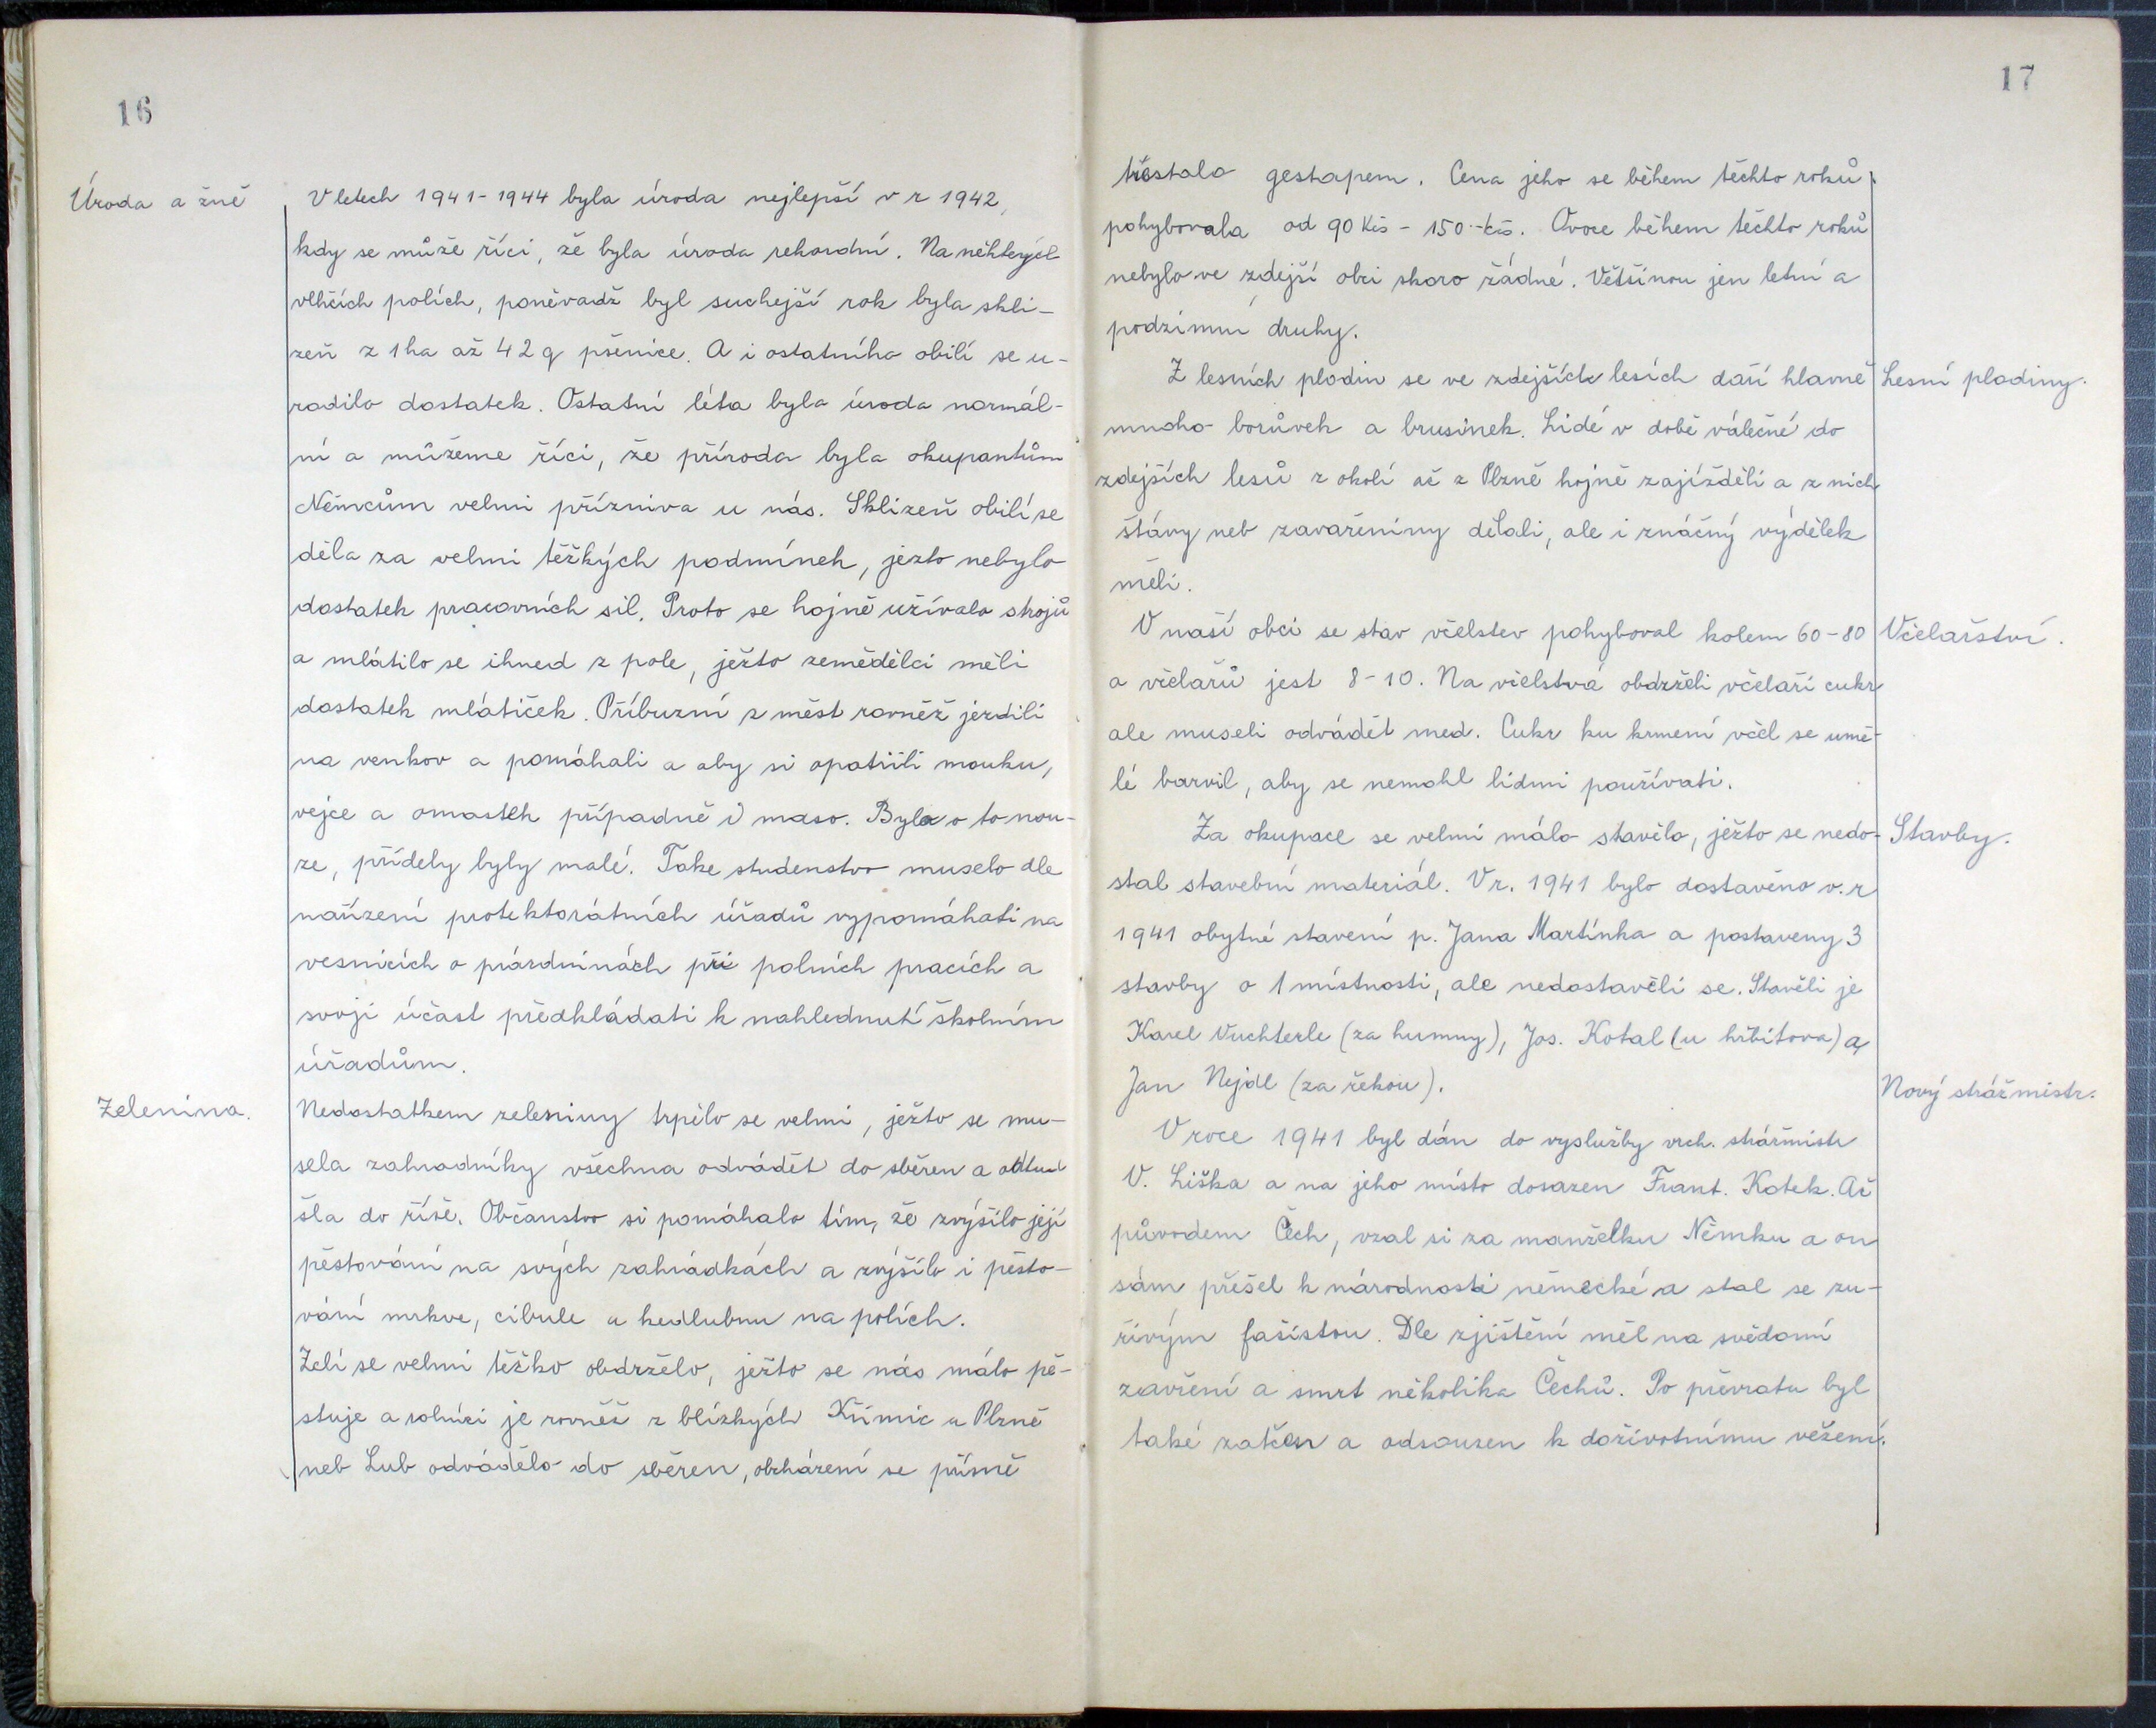 16
Úroda a žně
V letech 1941-1944 byla úroda nejlepší v r 1942,
kdy se může říci, že byla úroda rekordní. Na některých
vlhčích polích, poněvadž byl suchejší rok byla skli-
zeň z 1 ha až 42 q pšenice. A i ostatního obilí se u-
rodilo dostatek. Ostatní léta byla úroda normál-
ní a můžeme říci, že příroda byla okupantům
Němcům velmi přízniva u nás. Sklizeň obilí se
děla za velmi těžkých podmínek, jezto nebylo
dostatek pracovních sil. Proto se hojně užívalo strojů
a mlátilo se ihned z pole, ježto zemědělci měli
dostatek mlátiček. Příbuzní z měst rovněž jezdili
na venkov a pomáhali a aby si opatřili mouku,
vejce a omastek případně i maso. Byla o to nou-
ze, příděly byly malé. Take studenstvo muselo dle
nařízení protektorátních úřadů vypomáhati na
vesnicích o prázdninách při polních pracích a
svoji účast předkládati k nahlednutí školním
úřadům.
Zelenina.
Nedostatkem zeleniny trpělo se velmi, ježto se mu-
sela zahradníky všechna odvádět do sběren a odtud
šla do říše. Občanstvo si pomáhalo tím, že zvýšilo její
pěstování na svých zahrádkách a zvýšilo i pěsto-
vání mrkve, cibule a kedlubnu na polích.
Zelí se velmi těžko obdrželo, ježto se nás málo pě-
stuje a rolníci je rovněž z blízkých Křimic u Plzně
neb Lub odvádělo do sběren, obcházení se přímě
17
trestalo gestapem. Cena jeho se během těchto roků
pohybovala od 90 Kčs - 150 - kčs. Ovoce během těchto roků
nebylo ve zdejší obci skoro žádné. Většinou jen letní a
podzimní druhy.
Z lesních plodin se ve zdejších lesích daří hlavně
Lesní plodiny.
mnoho borůvek a brusinek. Lidé v době válečné do
zdejších lesů z okolí až z Plzně hojně zajížděli a z nich
šťávy neb zavařeniny dělali, ale i značný výdělek
měli.
V naší obci se stav včelstev pohyboval kolem 60-80
Včelařství.
a včelařů jest 8-10. Na včelstvá obdrželi včelaři cukr
ale museli odvádět med. Cukr ku krmení včel se umě-
lé barvil, aby se nemohl lidmi použivati.
Za okupace se velmi málo stavělo, ježto se nedo-
Stavby.
stal stavební materiál. V r. 1941 bylo dostavěno v. r
1941 obytné stavení p. Jana Martínka a postaveny 3
stavby o 1 místnosti, ale nedostavěli se. Stavěli je
Karel Vuchterle (za humny), Jos. Kotal (u hřbitova) a
Jan Nejdl (za řekou).
Nový strážmistr.
V roce 1941 byl dán do vyslužby vrch. strážmistr
V. Liška a na jeho místo dosazen Frant. Kotek. Ač
původem Čech, vzal si za manželku Němku a on
sám přešel k národnosti německé a stal se zu-
řivým fašistou. Dle zjištění měl na svědomí
zavření a smrt několika Čechů. Po převratu byl
také zatčen a odsouzen k doživotnímu vězení.